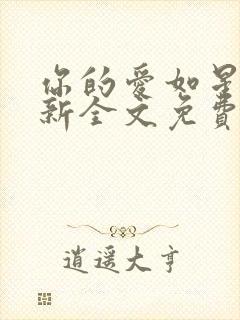 你的爱如星
新全文免費
逍遥大亨